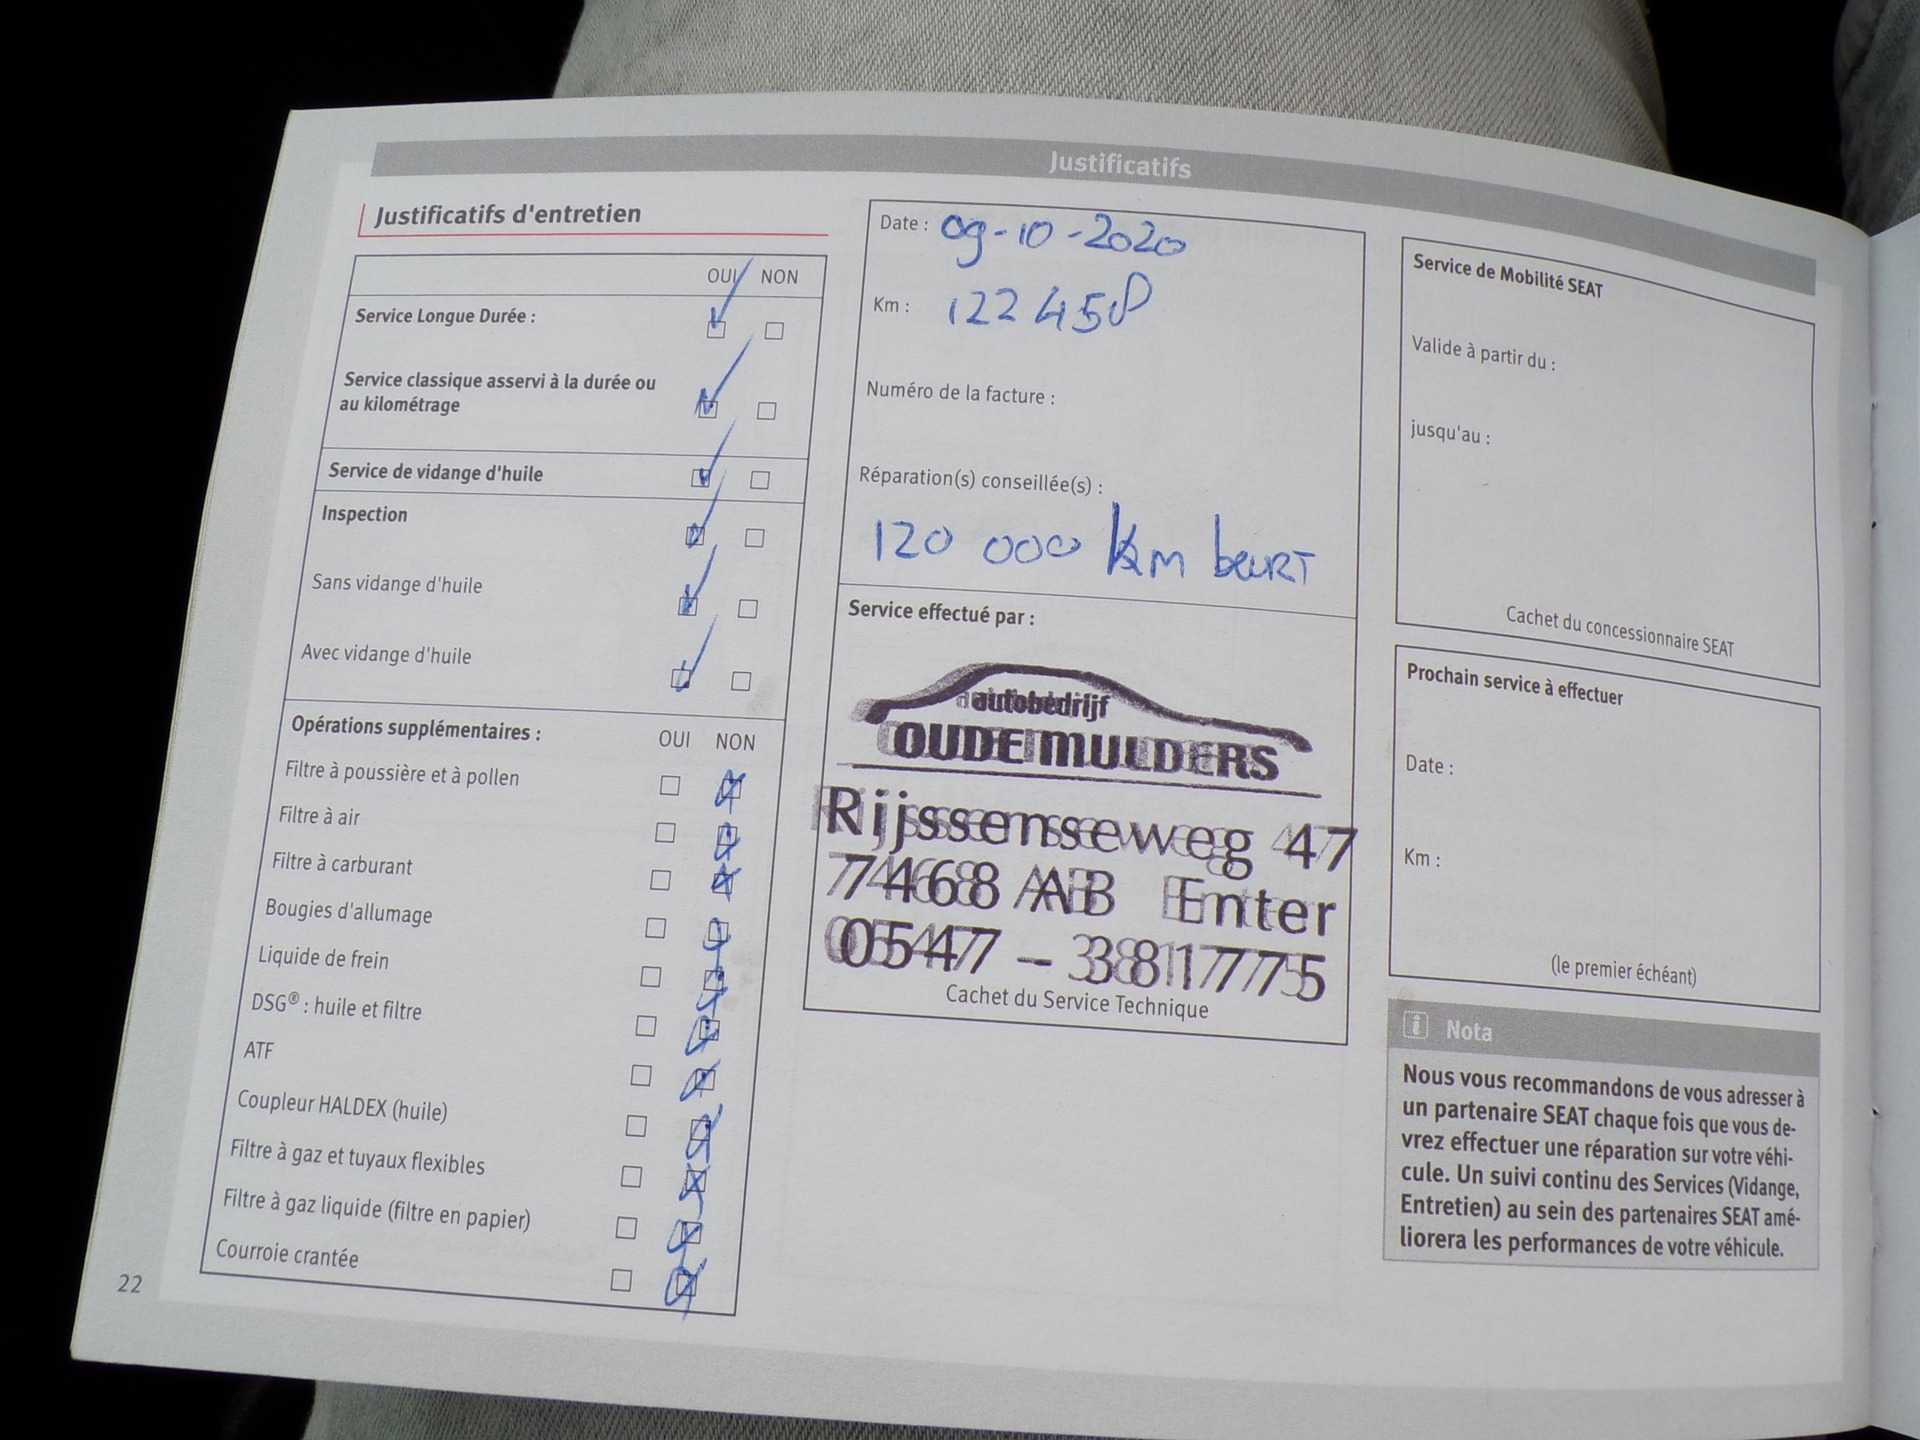 Justificatifs
Justificatifs d'entretien
OUI NON
Service Longue Durée :
Service classique asservi à la durée ou
au kilométrage
Service de vidange d'huile
Inspection
Sans vidange d'huile
Avec vidange d'huile
Opérations supplémentaires : OUI NON
Filtre à poussière et à pollen
Filtre à air
Filtre à carburant
Bougies d'allumage
Liquide de frein
DSG® : huile et filtre
ATF
Coupleur HALDEX (huile)
Filtre à gaz et tuyaux flexibles
Filtre à gaz liquide (filtre en papier)
Courroie crantée
22
Date : 09-10-2020
Km : 122 458
Numéro de la facture :
Réparation(s) conseillée(s) :
120 000 km beurt
Service effectué par :
autobedrijf
OUDE MULDERS
Rijssenseweg 47
7468 AB Enter
0547 - 381775
Cachet du Service Technique
Service de Mobilité SEAT
Valide à partir du :
jusqu'au :
Cachet du concessionnaire SEAT
Prochain service à effectuer
Date :
Km :
(le premier échéant)
i Nota
Nous vous recommandons de vous adresser à
un partenaire SEAT chaque fois que vous de-
vrez effectuer une réparation sur votre véhi-
cule. Un suivi continu des Services (Vidange,
Entretien) au sein des partenaires SEAT amé-
liorera les performances de votre véhicule.